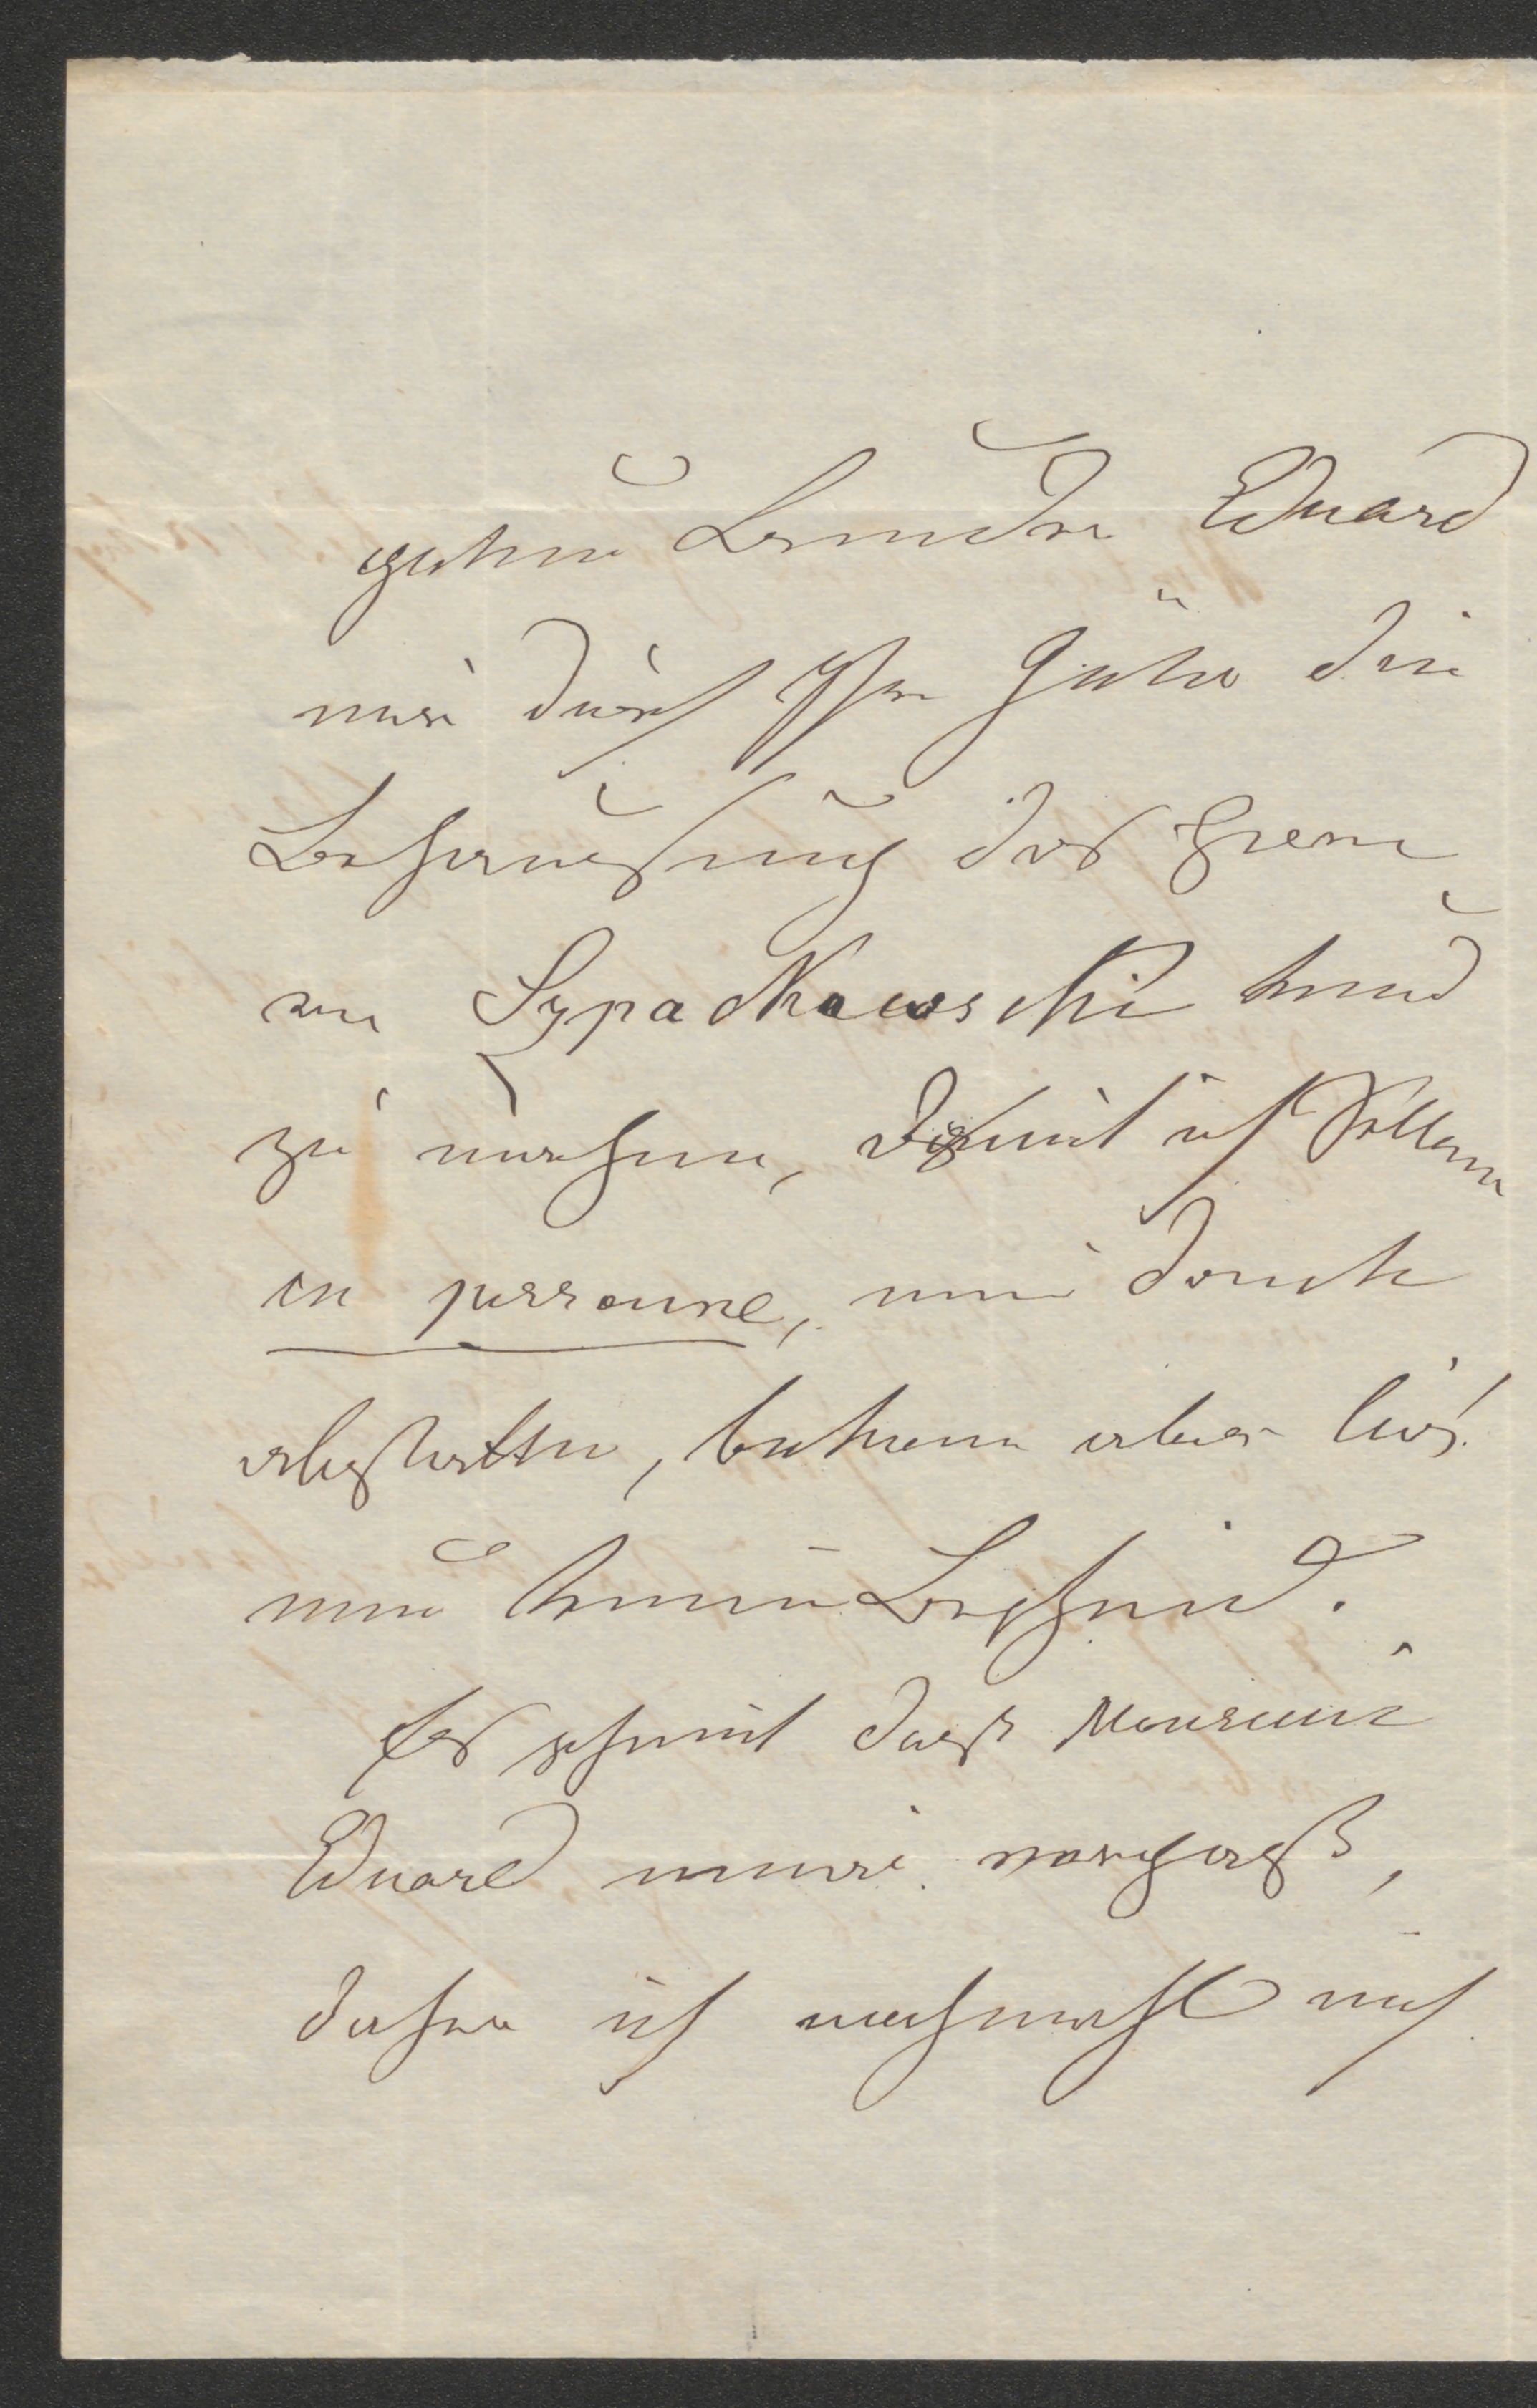 guten Bruder Eduard
mir durch Ihre Güte die
Behausung des Herrn
von Sypadkowski kund
zu machen, damit ich Selben
en personne, meinen Dank
abstatten, bekam aber bis
nun keinen Bescheid.
Es scheint dass Monsieur
Eduard meiner vergaß,
daher ich nochmahl mich